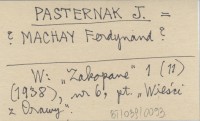 PASTERNAK J. =
? MACHAY Ferdynand?
W: „Zakopane” 1 (11)
(1938), nr 6, pt. „Wieści
z Orawy”.